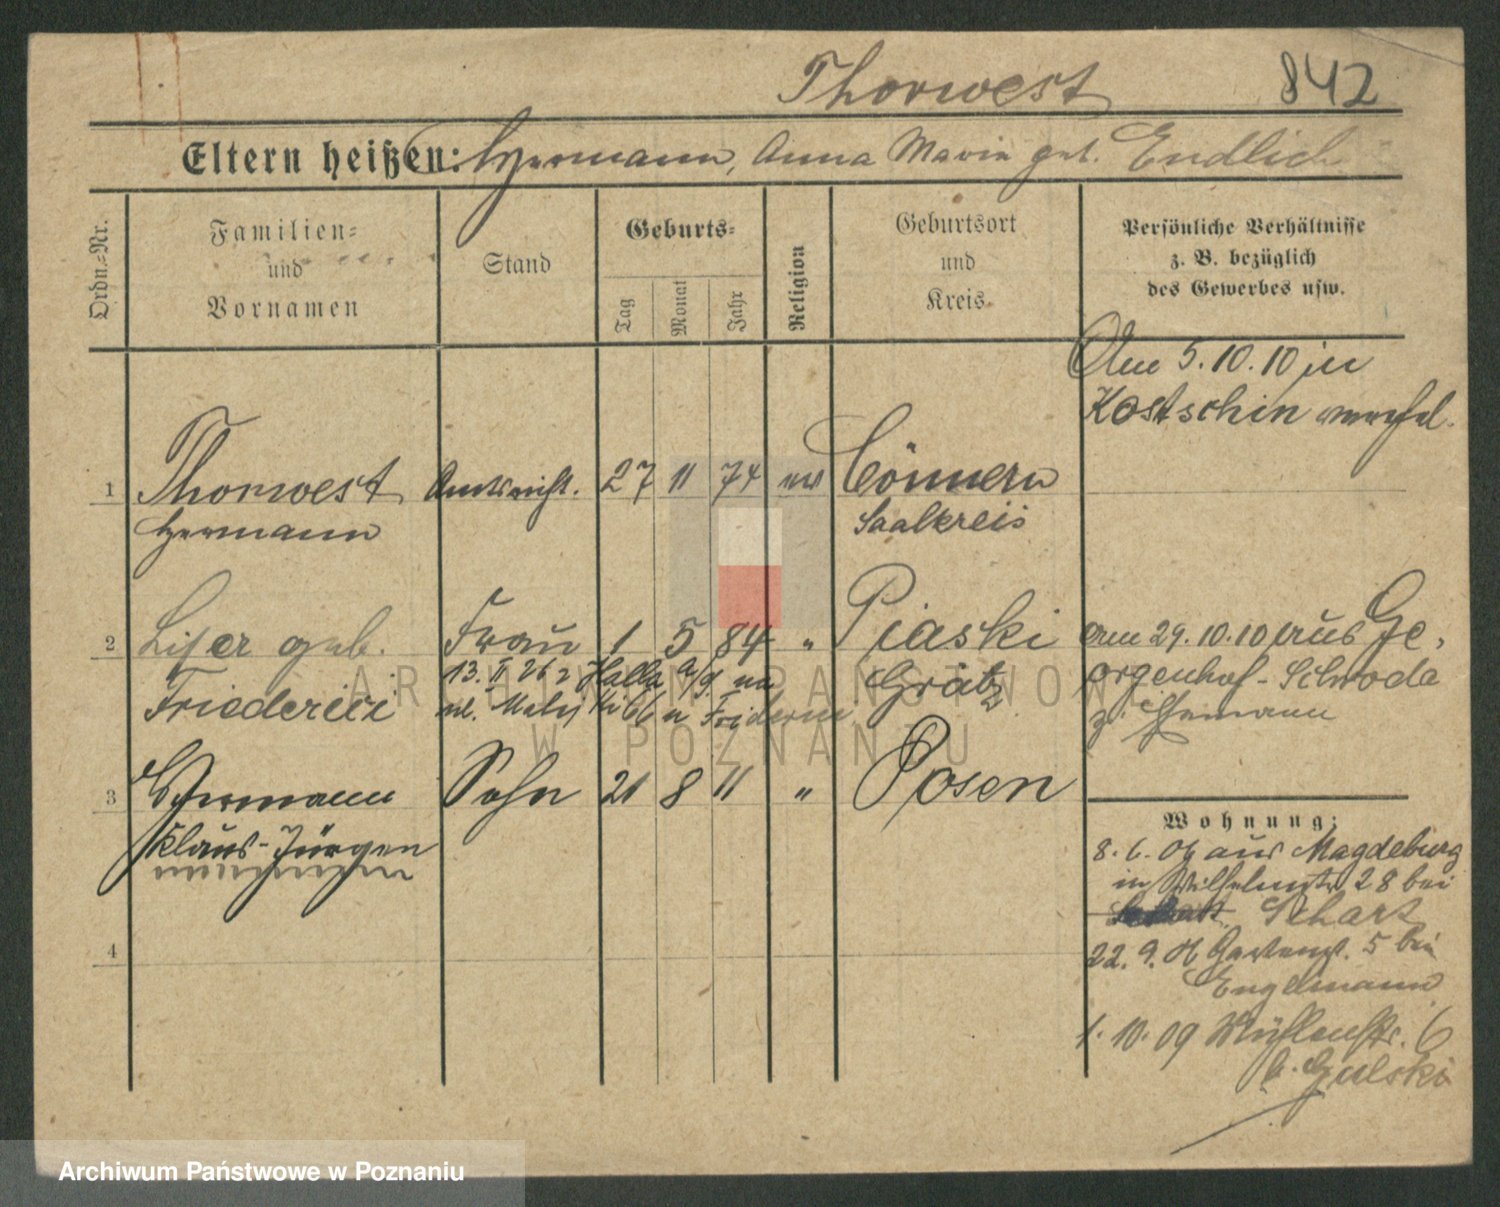 Thorwest 842
Eltern heißen: Hermann, Anna Maria geb. Endlich
Ordn.-Nr.
Familien-
und
Vornamen
Stand
Geburts-
Tag
Monat
Jahr
Religion
Geburtsort
und
Kreis
Persönliche Verhältnisse
z. B. bezüglich
des Gewerbes usw.
Am 5.10.10 in
Kostschin
1 Thorwest Amtsricht. 27 11 74 ev Cönnern
Hermann Saalkreis
2 geb. Frau 1 5 84 " Piaski am 29.10.10 aus Ge-
Friederici Grätz orgenhof-Schroda
13. II 26 Halla
z. Hermann
3 Hermann Sohn 21 8 11 " Posen
Klaus-Jürgen
Wohnung:
8.6.06 aus Magdeburg
in Wilhelmstr 28 bei
Schart
4
22.9.06 Gartenst. 5 bei
Engelmann
1.10.09 Mühlenstr. 6
b. Gulski
ARCHIWUM PAŃSTWOWE
W POZNANIU
Archiwum Państwowe w Poznaniu